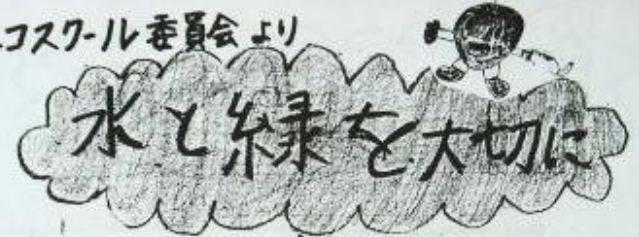 コスクール委員会より
水と緑を大切に